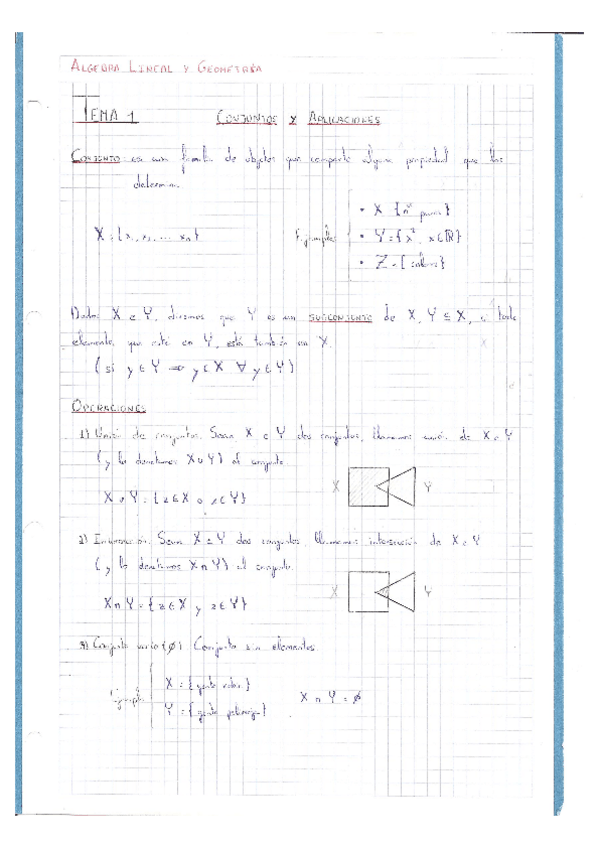 ALGEBRA LINEAL Y GEOMETRÍA
TEMA 1 CONJUNTOS Y APLICACIONES
CONJUNTO: es una familia de objetos que comparte alguna propiedad que los
determina.
X = {x₁, x₂, ... xₙ}
Ejemplos
• X {nº pares}
• Y = {x², x ∈ ℝ}
• Z = {colores}
Dados X e Y, diremos que Y es un SUBCONJUNTO de X, Y ⊆ X, si todo
elemento que esté en Y, está también en X.
(si y ∈ Y ⇒ y ∈ X ∀ y ∈ Y)
OPERACIONES
1) Unión de conjuntos. Sean X e Y dos conjuntos, llamamos unión de X e Y
(y lo denotamos X ∪ Y) al conjunto.
X ∪ Y = {z ∈ X o z ∈ Y}
X Y
2) Intersección. Sean X e Y dos conjuntos, llamamos intersección de X e Y
(y lo denotamos X ∩ Y) al conjunto.
X ∩ Y = {z ∈ X y z ∈ Y}
X Y
3) Conjunto vacío (∅) Conjunto sin elementos.
Ejemplo
X = {gente }
Y = {gente }
X ∩ Y = ∅